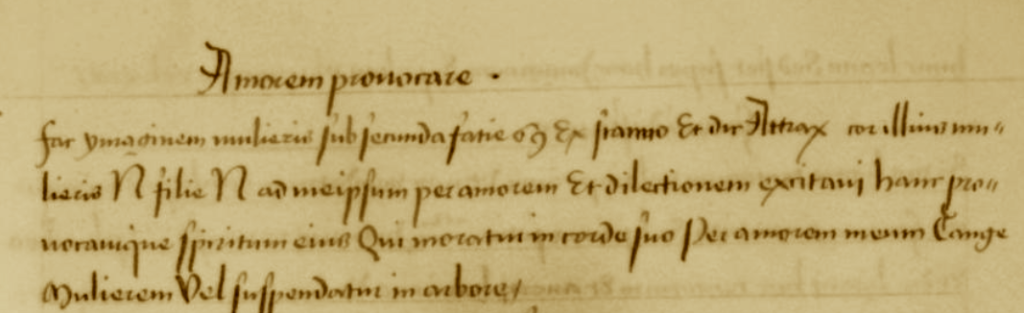 Amorem prouocare .
fac ymaginem mulieris sub secunda facie Ex stanno Et dic Attrax cor illius mu„
lieris N filie N ad meipsum per amorem Et dilectionem excitaui hanc pro„
uocauique spiritum eius Qui moratur in corde suo Per amorem meum Tange
Mulierem Vel suspendatur in arbore/